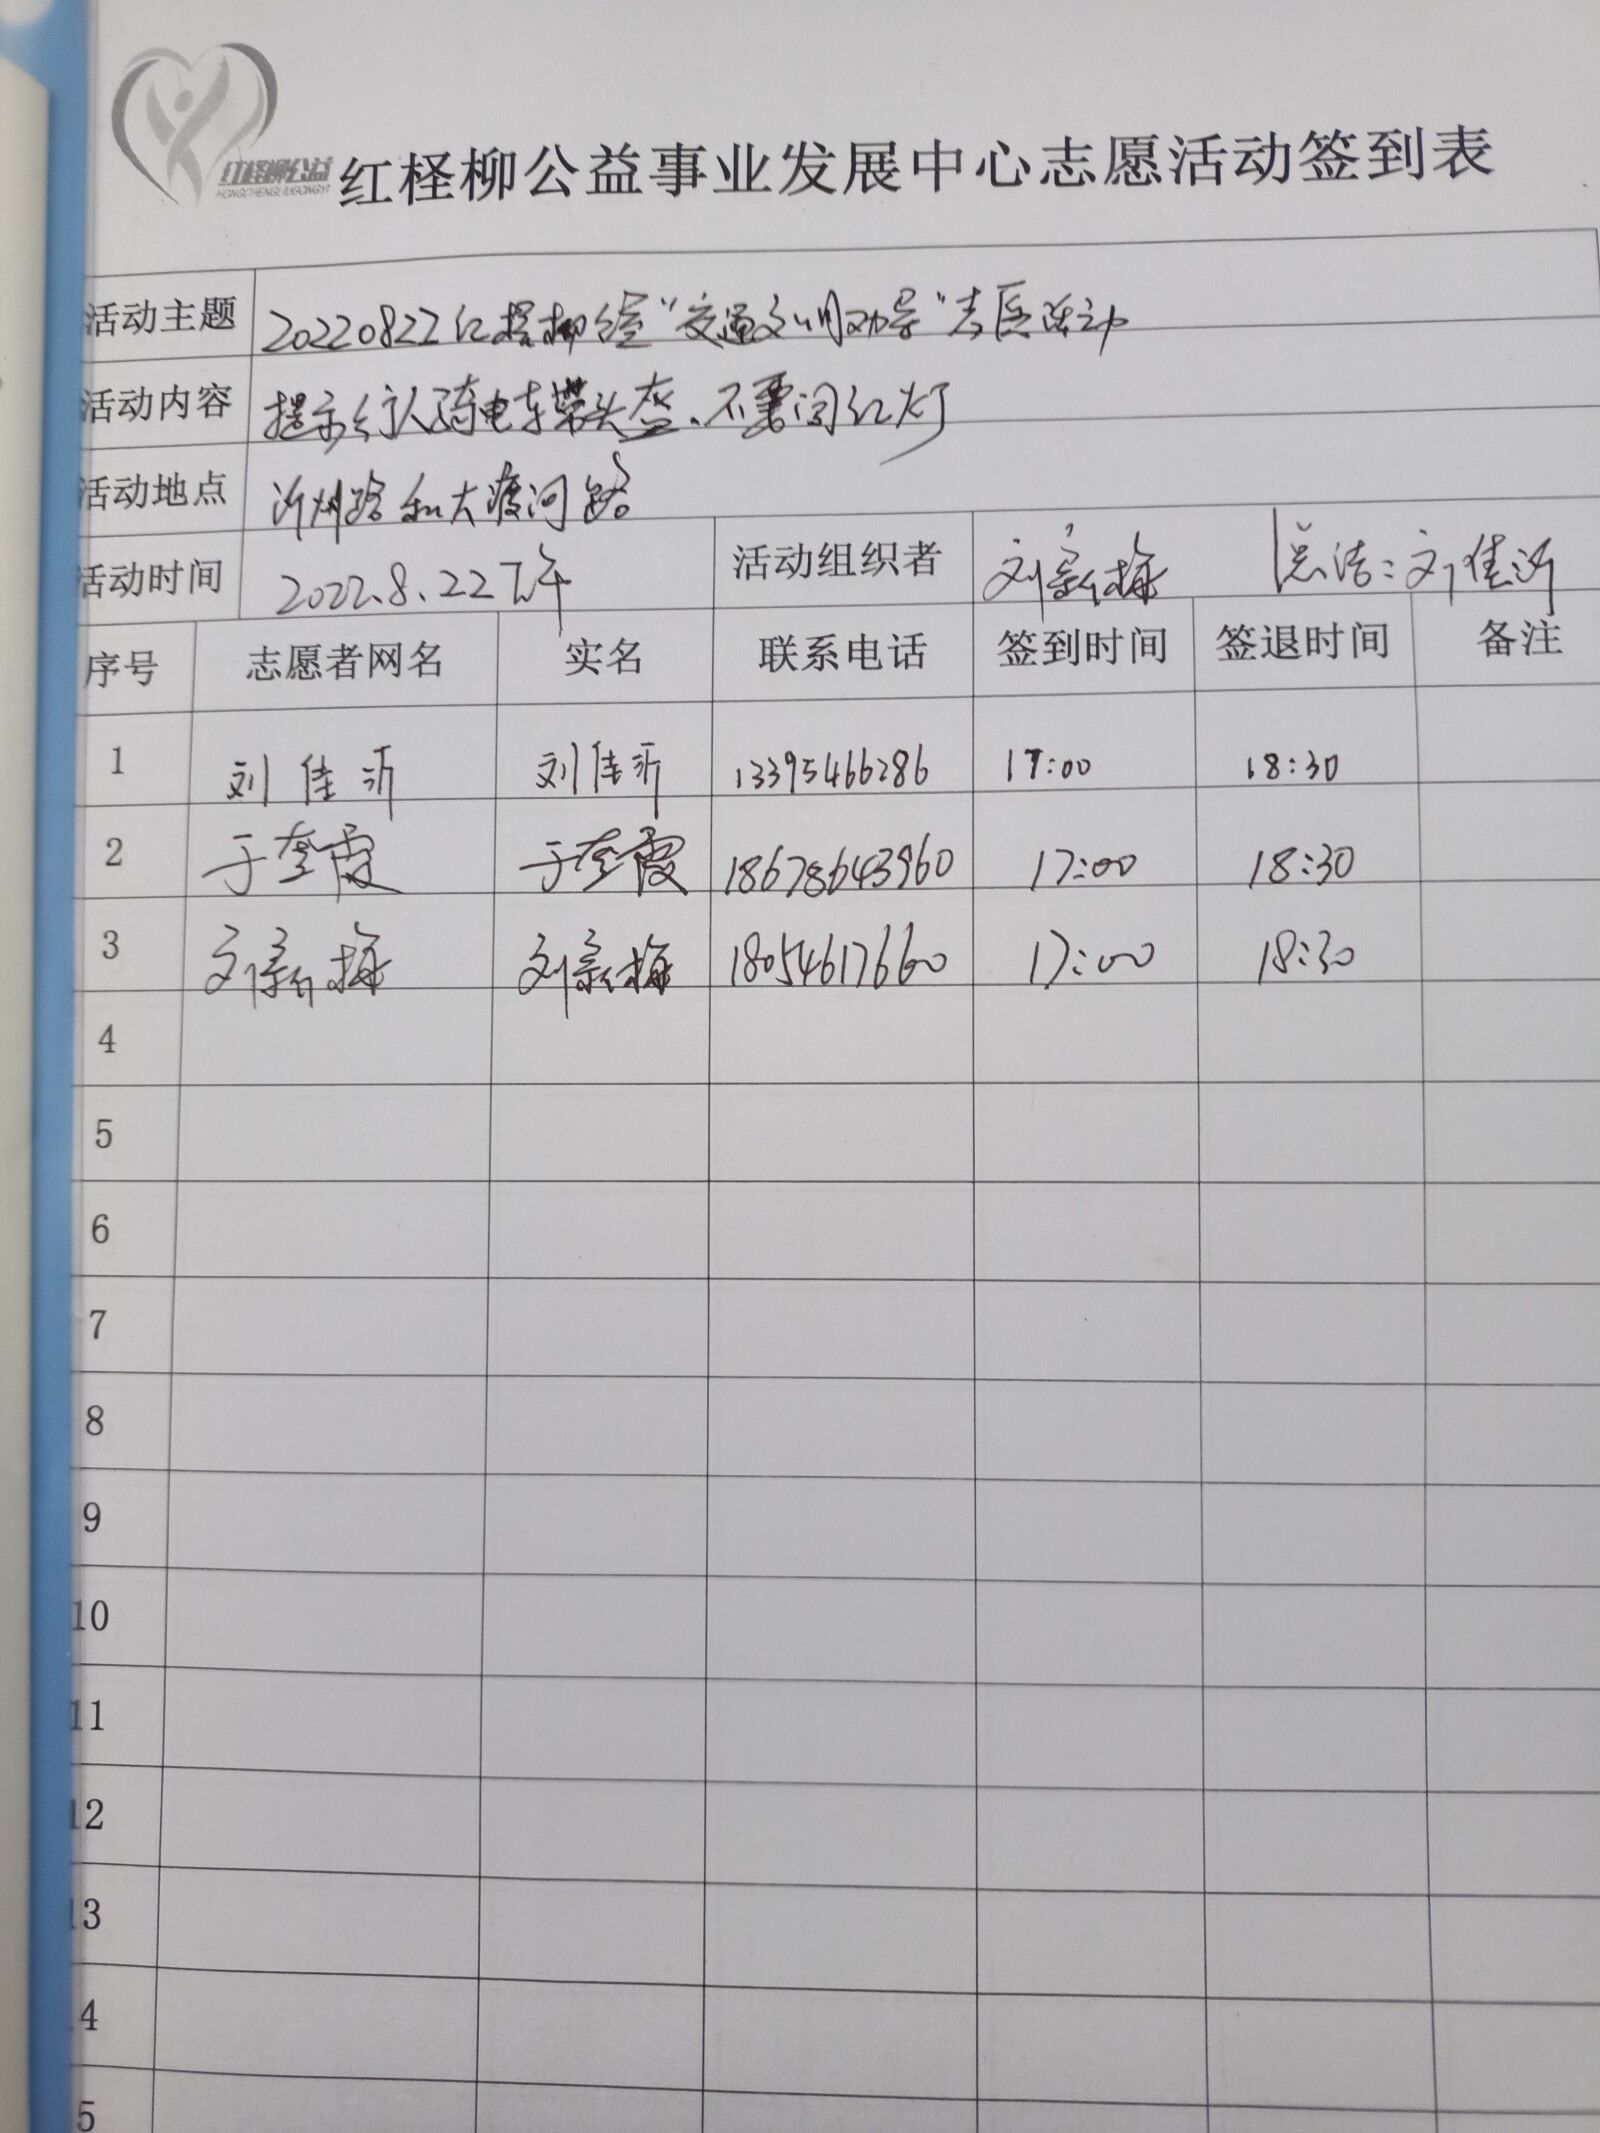 红柽柳公益
HONGCHENGLIUGONGYI
红柽柳公益事业发展中心志愿活动签到表
活动主题 20220822红柽柳“交通文明劝导”志愿活动
活动内容 提示行人骑电车带头盔、不要闯红灯
活动地点 沂州路和大渡河路
活动时间 2022.8.22下午 活动组织者 刘新梅 总结:刘佳沂
序号 志愿者网名 实名 联系电话 签到时间 签退时间 备注
1 刘佳沂 刘佳沂 13395466286 17:00 18:30
2 于奎霞 于奎霞 18678643960 17:00 18:30
3 刘新梅 刘新梅 18054617660 17:00 18:30
4
5
6
7
8
9
10
11
12
13
4
5